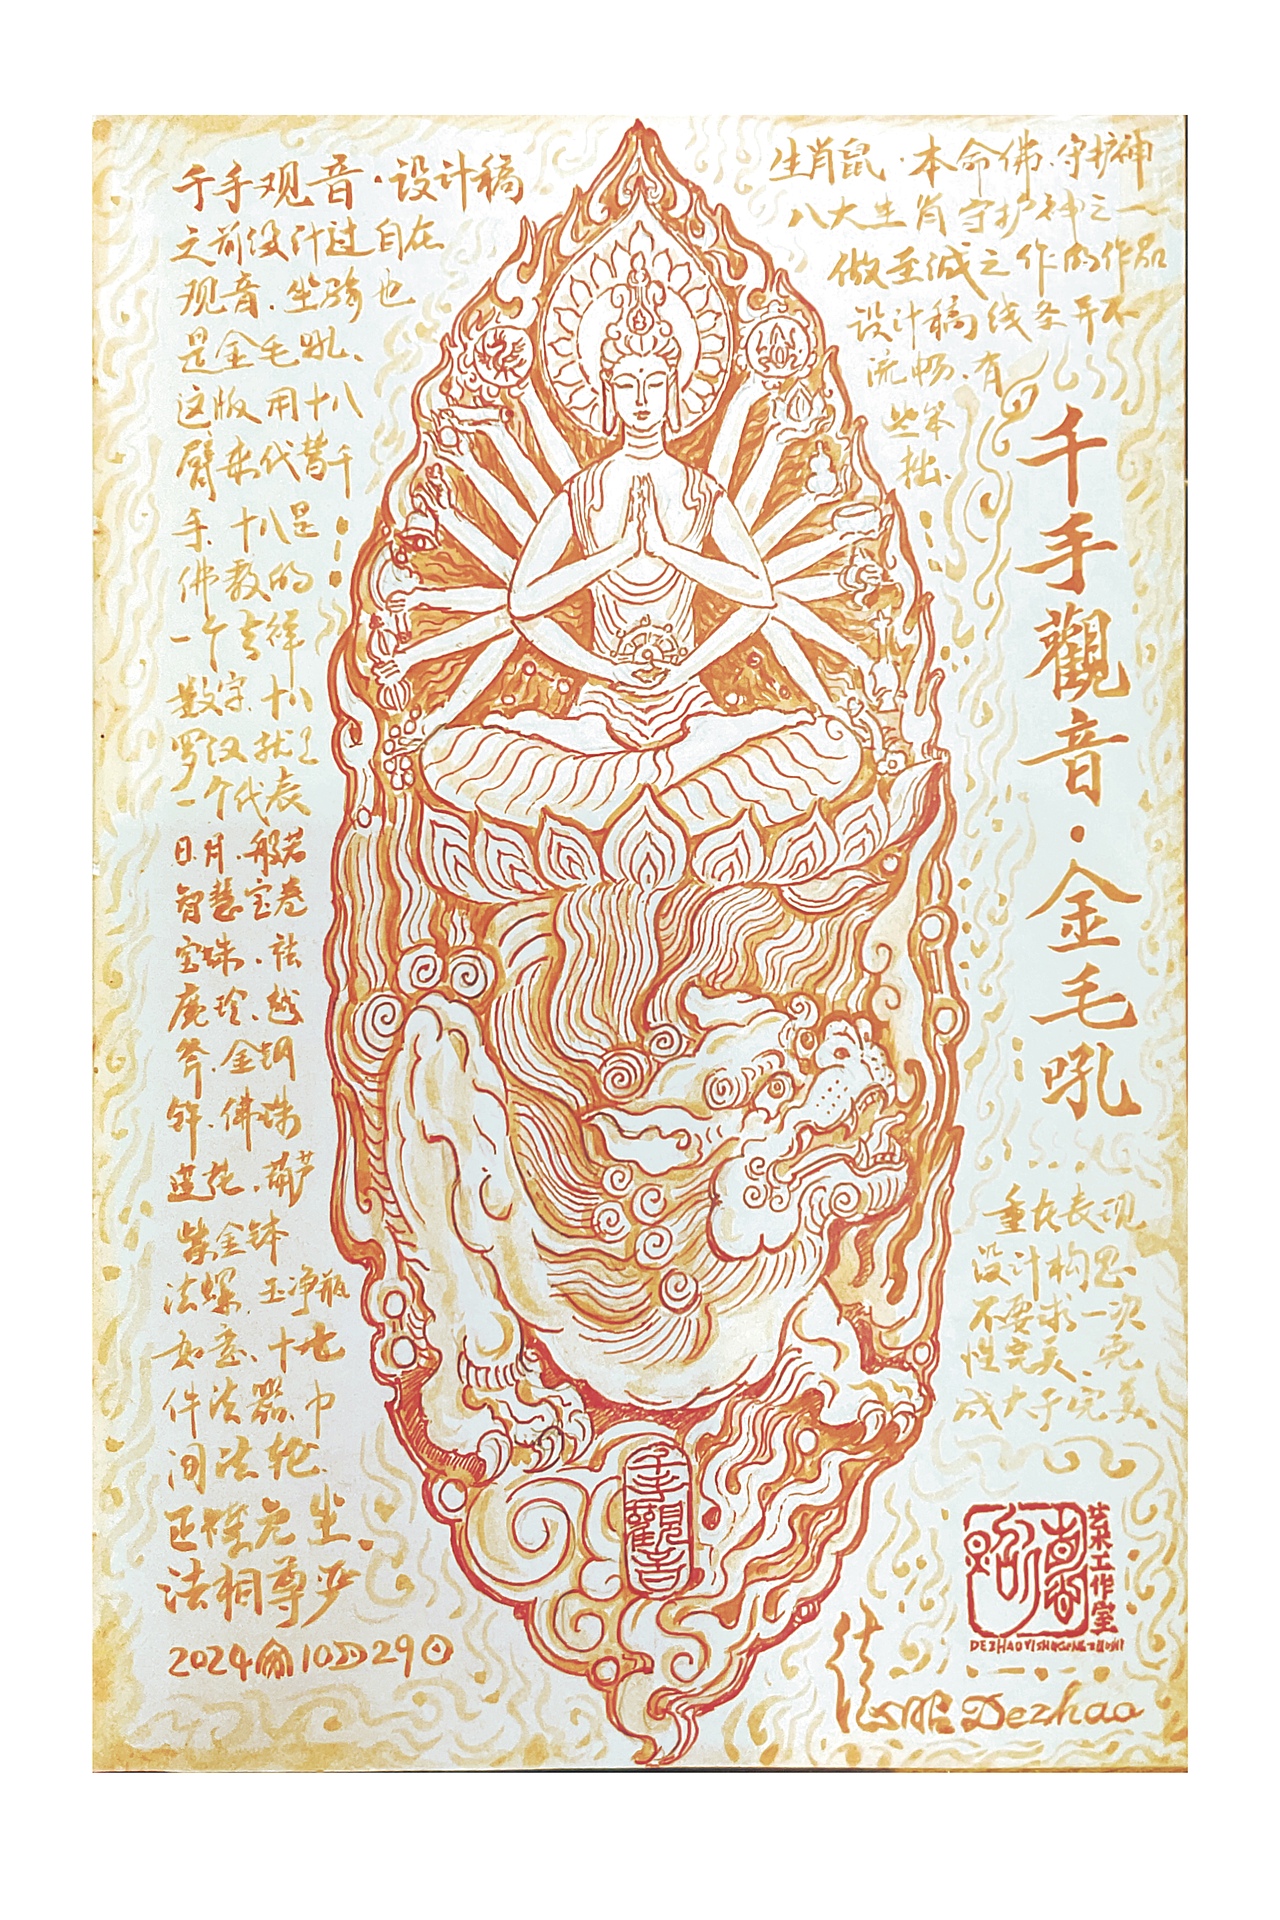 千手观音·设计稿
之前设计过自在
观音.坐骑也
是金毛吼、
这版用十八
臂来代替千
手.十八是
佛教的
一个吉祥
数字.十八
罗汉就是
一个代表
日.月.般若
智慧宝卷
宝珠.祛
魔铃.越
斧.金钢
杵.佛珠
莲花.葫芦
紫金钵
法螺.玉净瓶
如意.十七
件法器.中
间法轮.
正襟危坐.
法相尊严
2024 10 29
生肖鼠·本命佛.守护神
八大生肖守护神之一
做至诚之作的作品
设计稿线条并不
流畅.有
些笨
拙.
千手觀音·金毛吼
重在表现
设计构思
不要求一次
性完美.完
成大于完美
千手觀音
艺术工作室
DEZHAOYISHUGONGZUOSHI
德昭 Dezhao